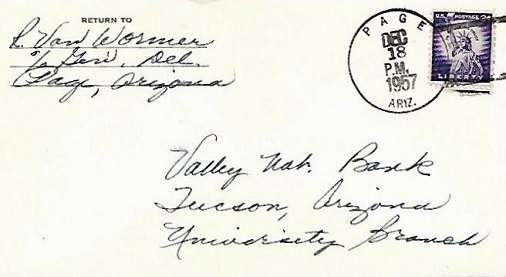 RETURN TO
R. Van Wormer
% Gen. Del.
Page, Arizona
PAGE
DEC
18
P.M.
1957
ARIZ.
U.S. POSTAGE 3¢
LIBERTY
Valley Nat. Bank
Tucson, Arizona
University Branch